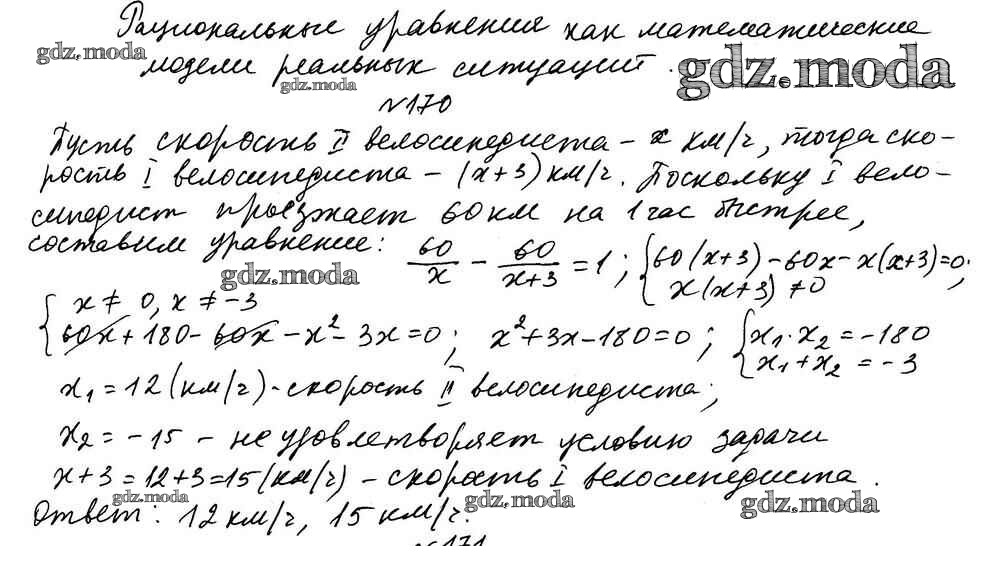 Рациональные уравнения как математические
gdz.moda
модели реальных ситуаций.
gdz.moda
gdz.moda
№170
Пусть скорость II велосипедиста – x км/ч, тогда ско-
рость I велосипедиста – (x+3) км/ч. Поскольку I вело-
сипедист проезжает 60 км на 1 час быстрее,
составим уравнение: 60/x − 60/(x+3) = 1; { 60(x+3) − 60x − x(x+3) = 0;
x(x+3) ≠ 0
gdz.moda
{ x ≠ 0, x ≠ −3
60x + 180 − 60x − x² − 3x = 0; x² + 3x − 180 = 0; { x₁·x₂ = −180
x₁ + x₂ = −3
x₁ = 12 (км/ч) - скорость II велосипедиста;
x₂ = −15 – не удовлетворяет условию задачи
x+3 = 12+3 = 15 (км/ч) – скорость I велосипедиста.
gdz.moda
gdz.moda
gdz.moda
Ответ: 12 км/ч, 15 км/ч.
№171